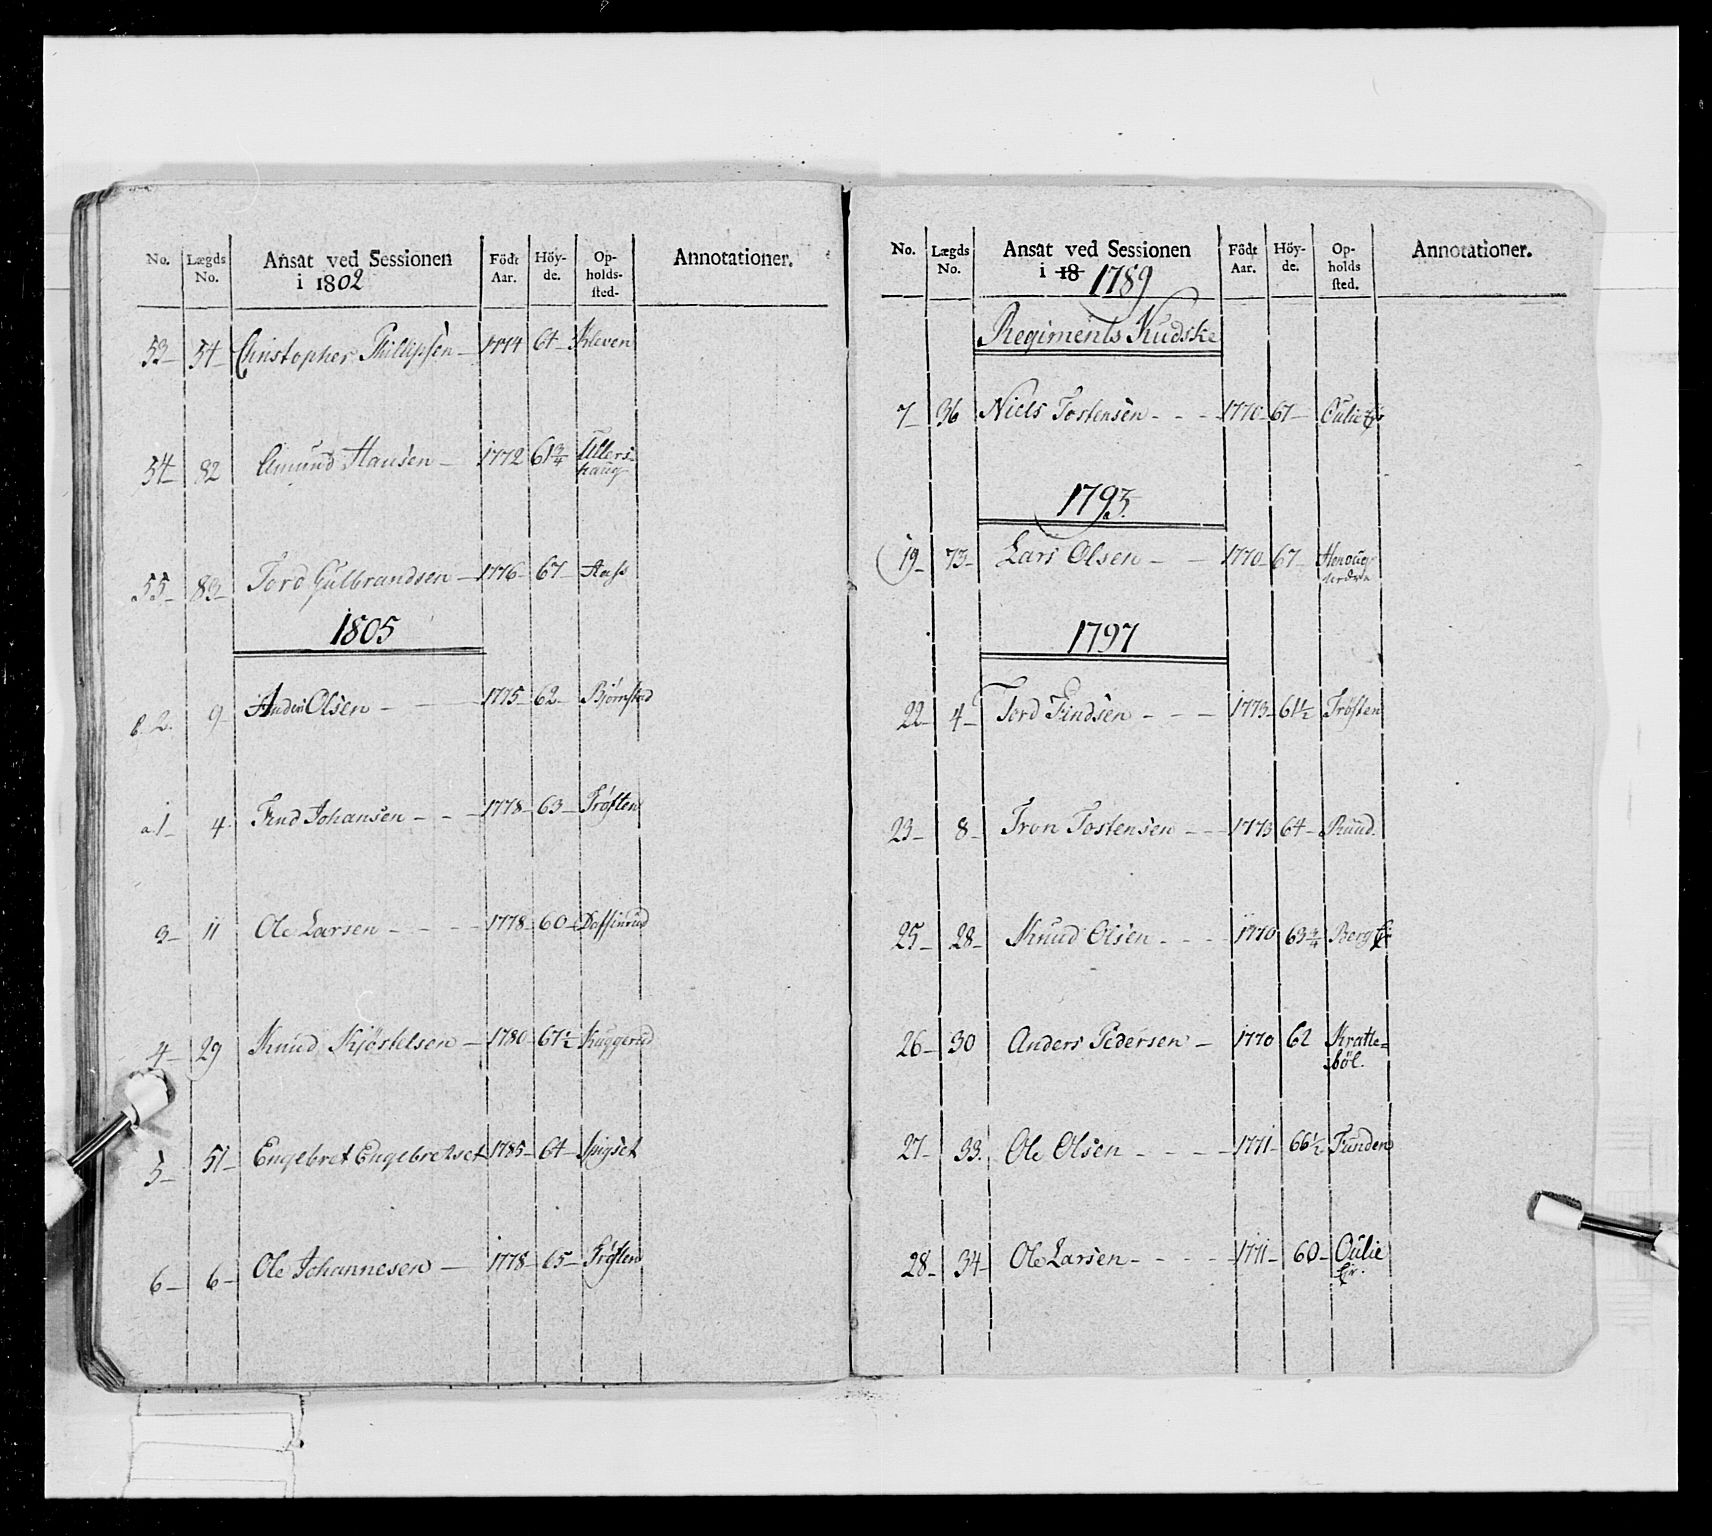 No. Lægds No. Ansat ved Sessionen i 1802 Födt Aar. Höy-de. Op-holds-sted- Annotationer.
53- 54- Christopher Phillipsen - 1774 64- Kleven
54- 82 Amund Hansen - 1772 61 3/4 Ullers-haug
55- 83- Tord Gulbrandsen - 1776- 67- Aass
1805
b. 2. 9- Anders Olsen - - 1775- 62- Bjørnstad
a. 1- 4. Find Johansen - - - 1778- 63- Tröften
3- 11 Ole Larsen - - - - 1778- 60-
4- 29 Knud Kjöstelsen - 1780- 67 1/2 Kuggerud
5- 51- Engebret Engebretset 1785- 64- Spigset
6- 6- Ole Johannesen - 1778- 65- Tröften
No. Lægds No. Ansat ved Sessionen i 18 1789 Födt Aar. Höy-de. Op-holds sted. Annotationer.
Regiments Kudske
7- 36 Niels Tostensen - - - 1770- 67- Oulie
1793.
19- 73- Lars Olsen - - 1770- 67-
1797
22- 4- Tord Findsen - - - 1773- 61 1/2 Tröften
23- 8- Tron Tostensen - - - 1773 64- Ruud.
25- 28- Knud Olsen - - - 1770 63 3/4 Berg
26- 30 Anders Pedersen - 1770 62 Kratte=böl.
27- 33. Ole Olsen - - - - 1771- 66 1/2 Funden
28- 34- Ole Larsen - - - - 1771- 60- Oulie